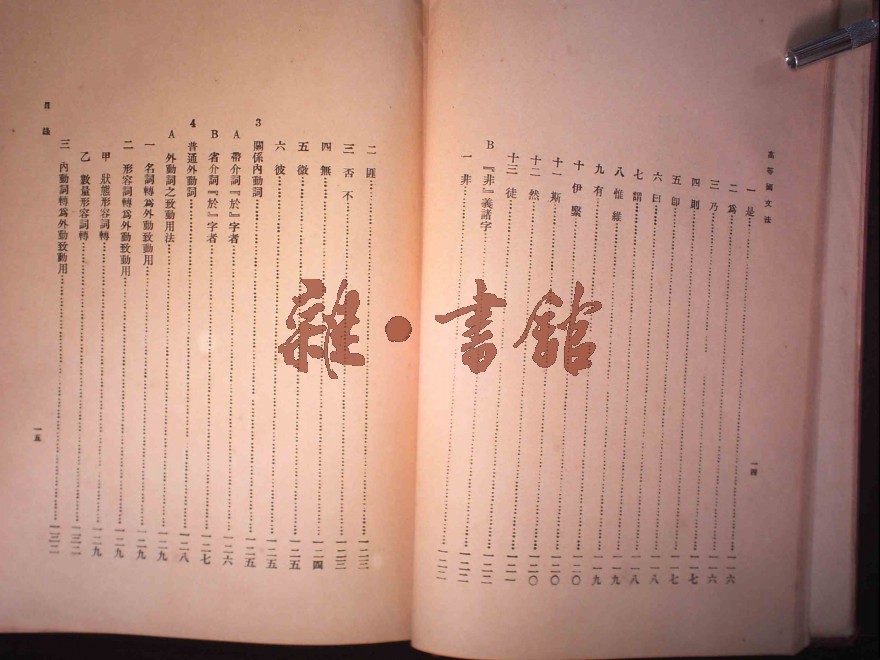 高等國文法
一 是 一一六
二 爲 一一六
三 乃 一一七
四 則 一一七
五 即 一一八
六 曰 一一八
七 謂 一一九
八 惟維 一一九
九 有 一二〇
十 伊繄 一二〇
十一 斯 一二〇
十二 然 一二一
十三 徒 一二二
B 『非』義諸字 一二二
一 非 一二二
一四
二 匪 一二三
三 否不 一二三
四 無 一二四
五 微 一二五
六 彼 一二五
3 關係內動詞 一二五
A 帶介詞『於』字者 一二六
B 省介詞『於』字者 一二七
4 普通外動詞 一二八
A 外動詞之致動用法 一二九
一 名詞轉爲外動致動用 一二九
二 形容詞轉爲外動致動用 一二九
甲 狀態形容詞轉 一二九
乙 數量形容詞轉 一三二
三 內動詞轉爲外動致動用 一三二
目錄
一五
雜·書館